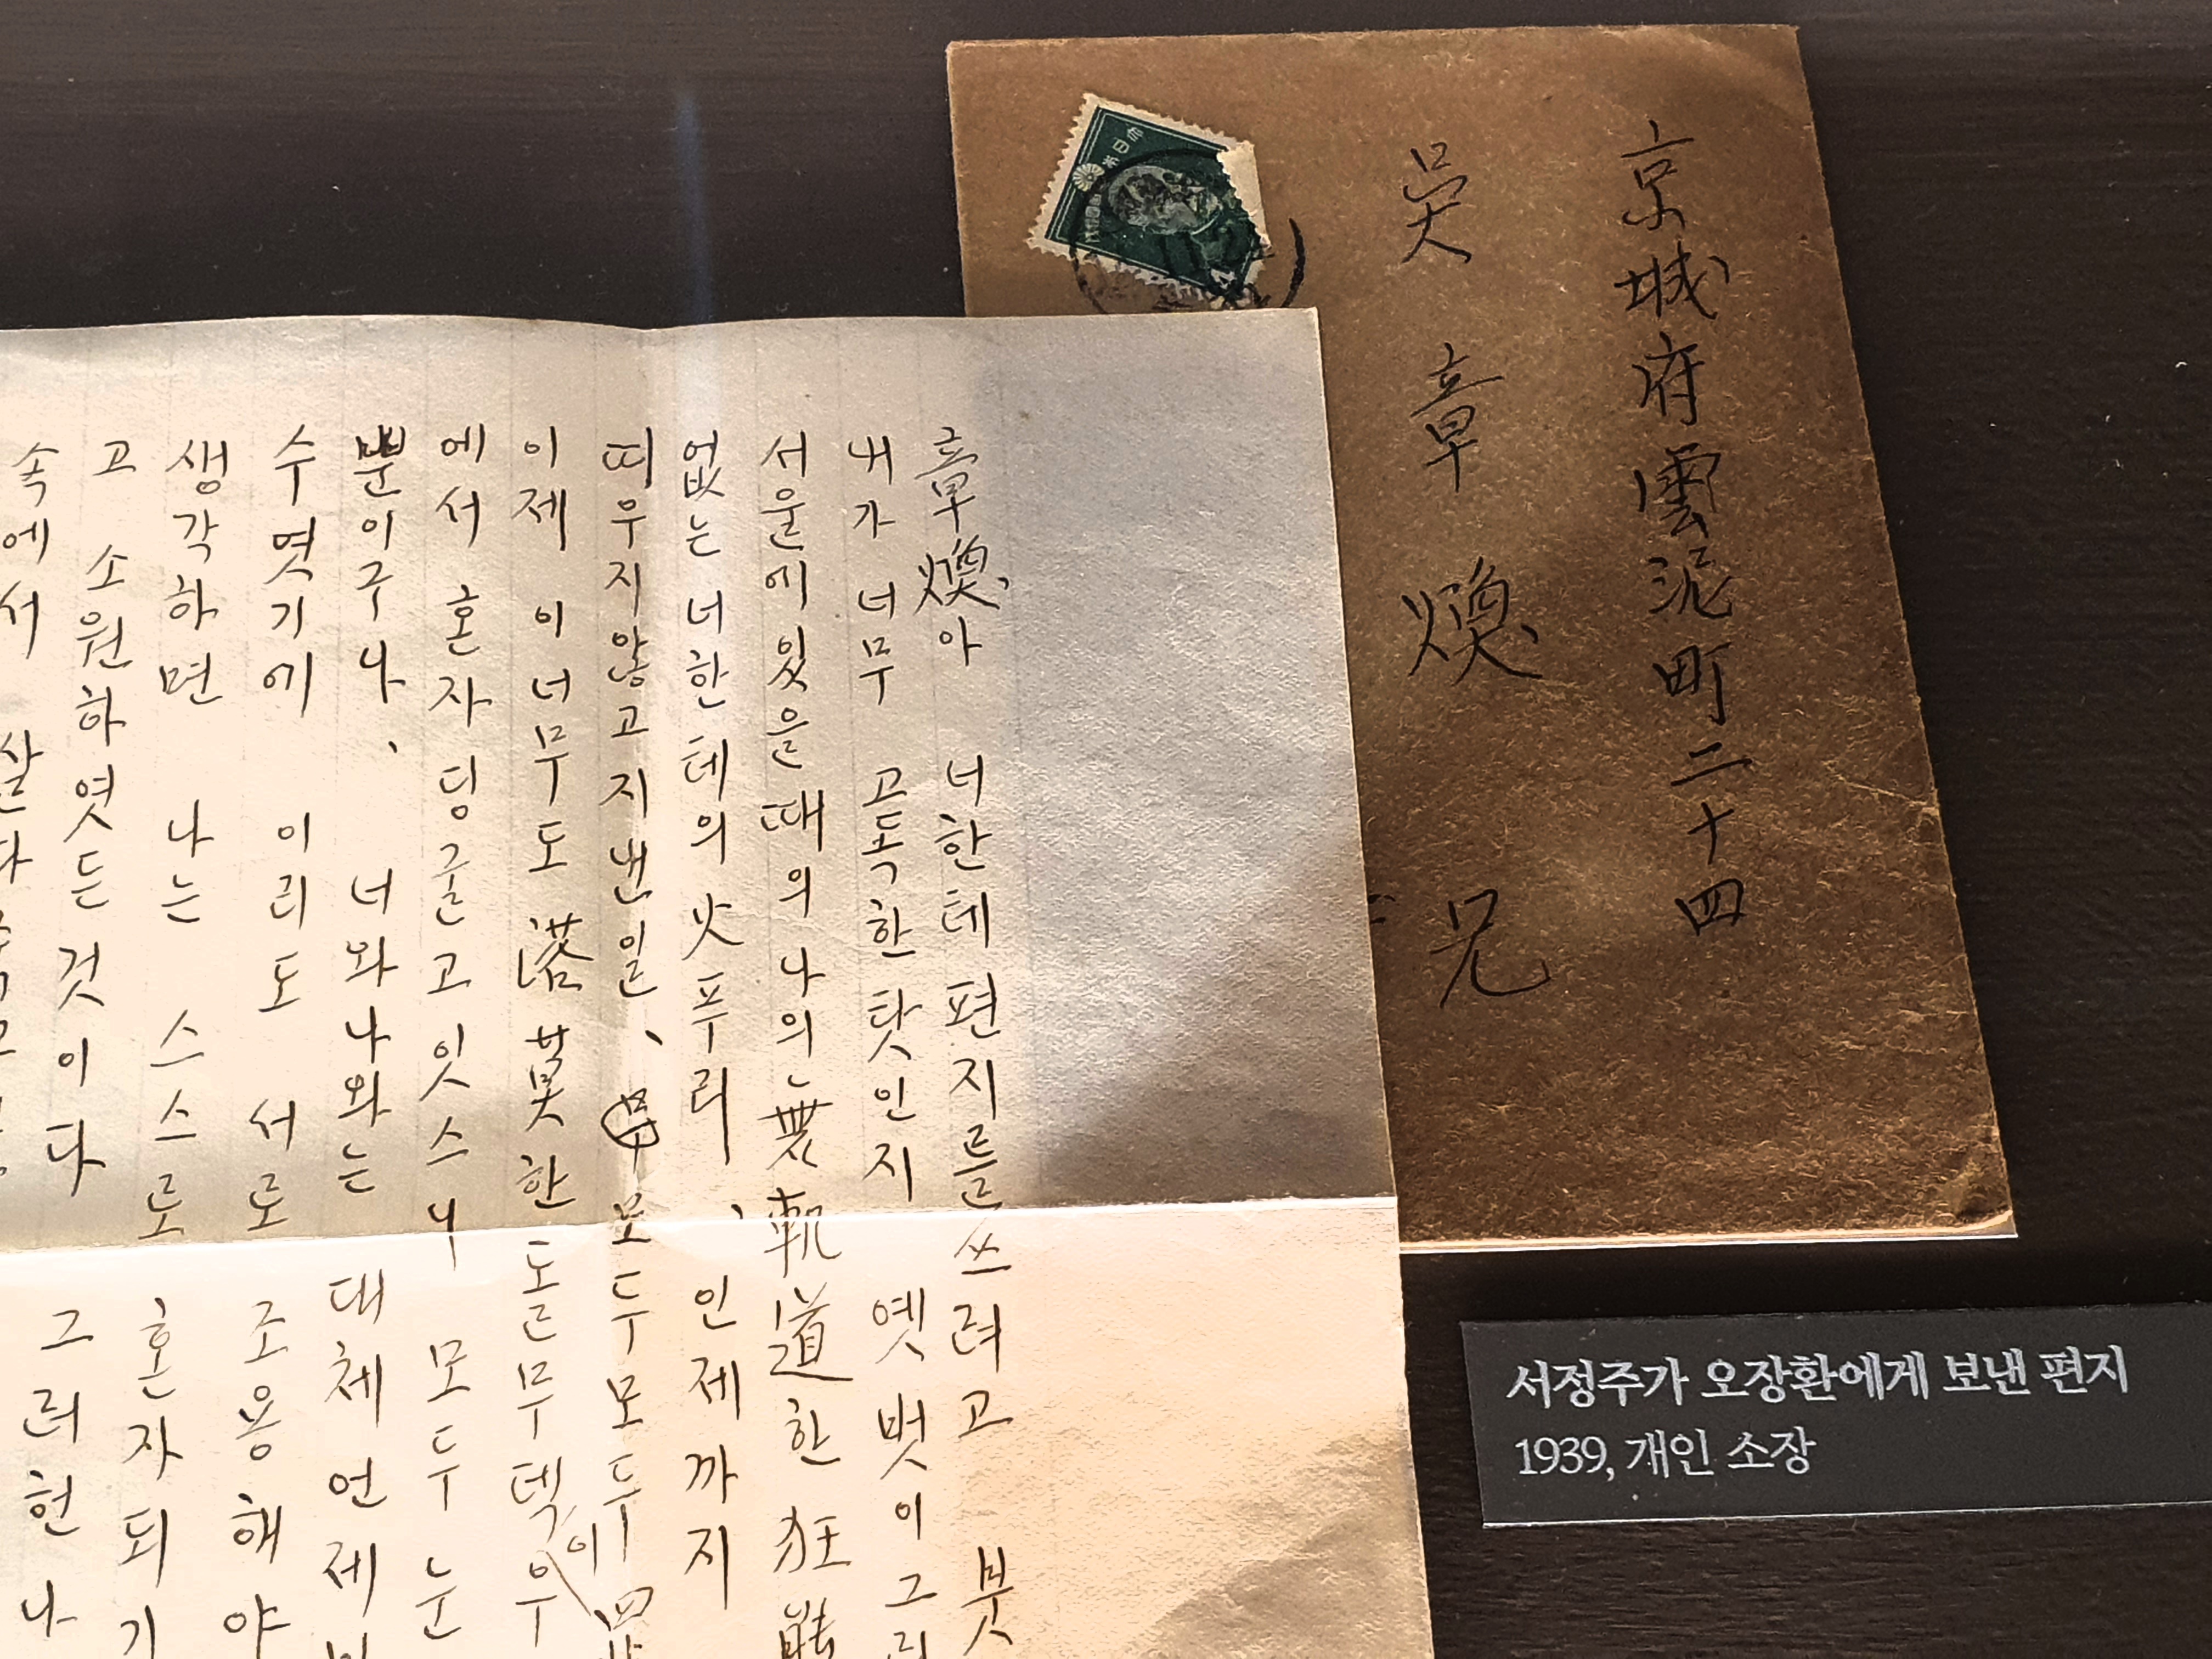 京城府雲泥町二十四
吳章煥 兄
章煥아 너한테 편지를 쓰려고 붓
내가 너무 고독한 탓인지 옛 벗이 그리
서울에 있을 때의 나의 無軌道한 狂態
없는 너한테의 火푸리、 인제까지
띠우지 않고 지낸 일、 모두 모두
이제 이 너무도 落莫한 돌무텍이 우
에서 혼자 딩굴고 잇스니 모두 눈
뿐이구나、 너와 나와는 대체 언제
수 엿기에 이리도 서로 조용해야
생각하면 나는 스스로 혼자 되기
고 소원하엿든 것이다 그러헌 나
속에서
서정주가 오장환에게 보낸 편지
1939, 개인 소장